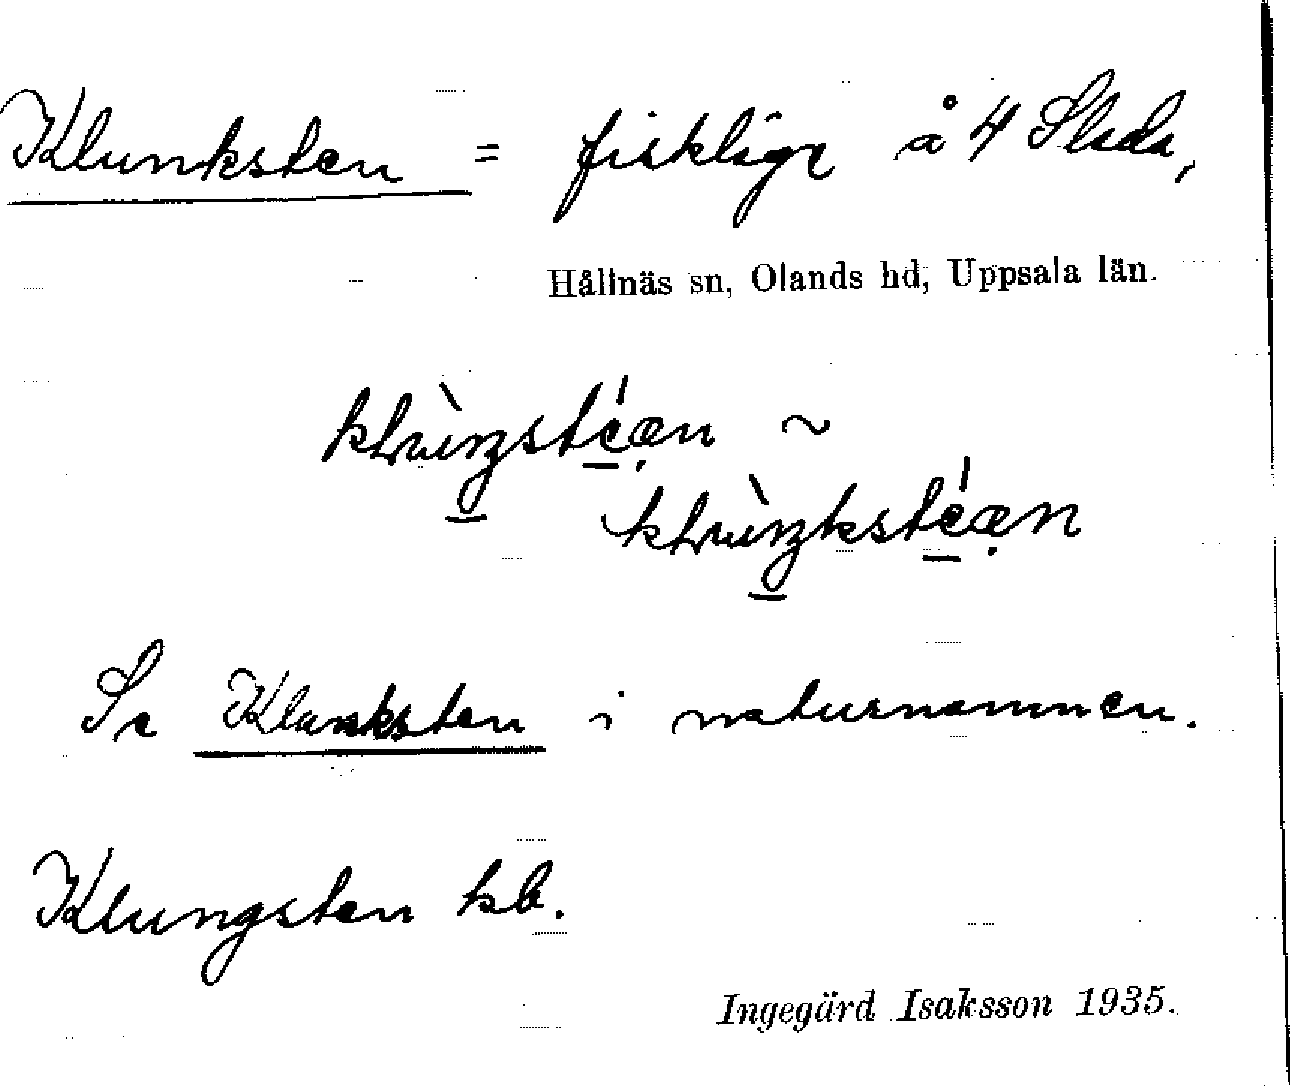 Klunksten = fiskläge å 4 Slada,
Hållnäs sn, Olands hd, Uppsala län.
~
Se Klunksten i naturnamnen.
Klungsten kb.
Ingegärd Isaksson 1935.